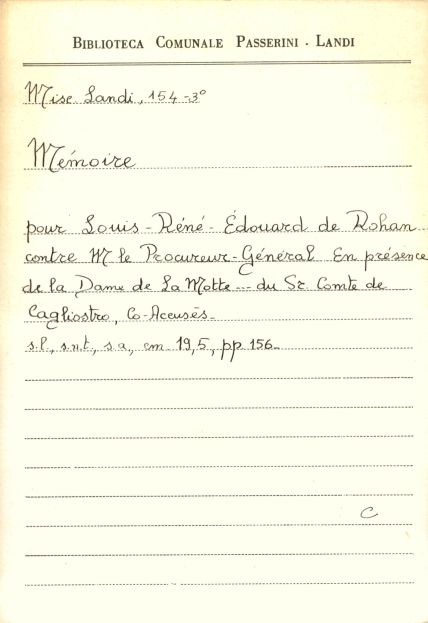 BIBLIOTECA COMUNALE PASSERINI - LANDI
Misc Landi, 154-3°
Mémoire
pour Louis-Réné-Édouard de Rohan
contre M le Procureur-Général En présence
de la Dame de La Motte... du Sr Comte de
Cagliostro, Co-Acusés.
s.l., s.n.t., s.a., cm 19,5, pp 156.
C